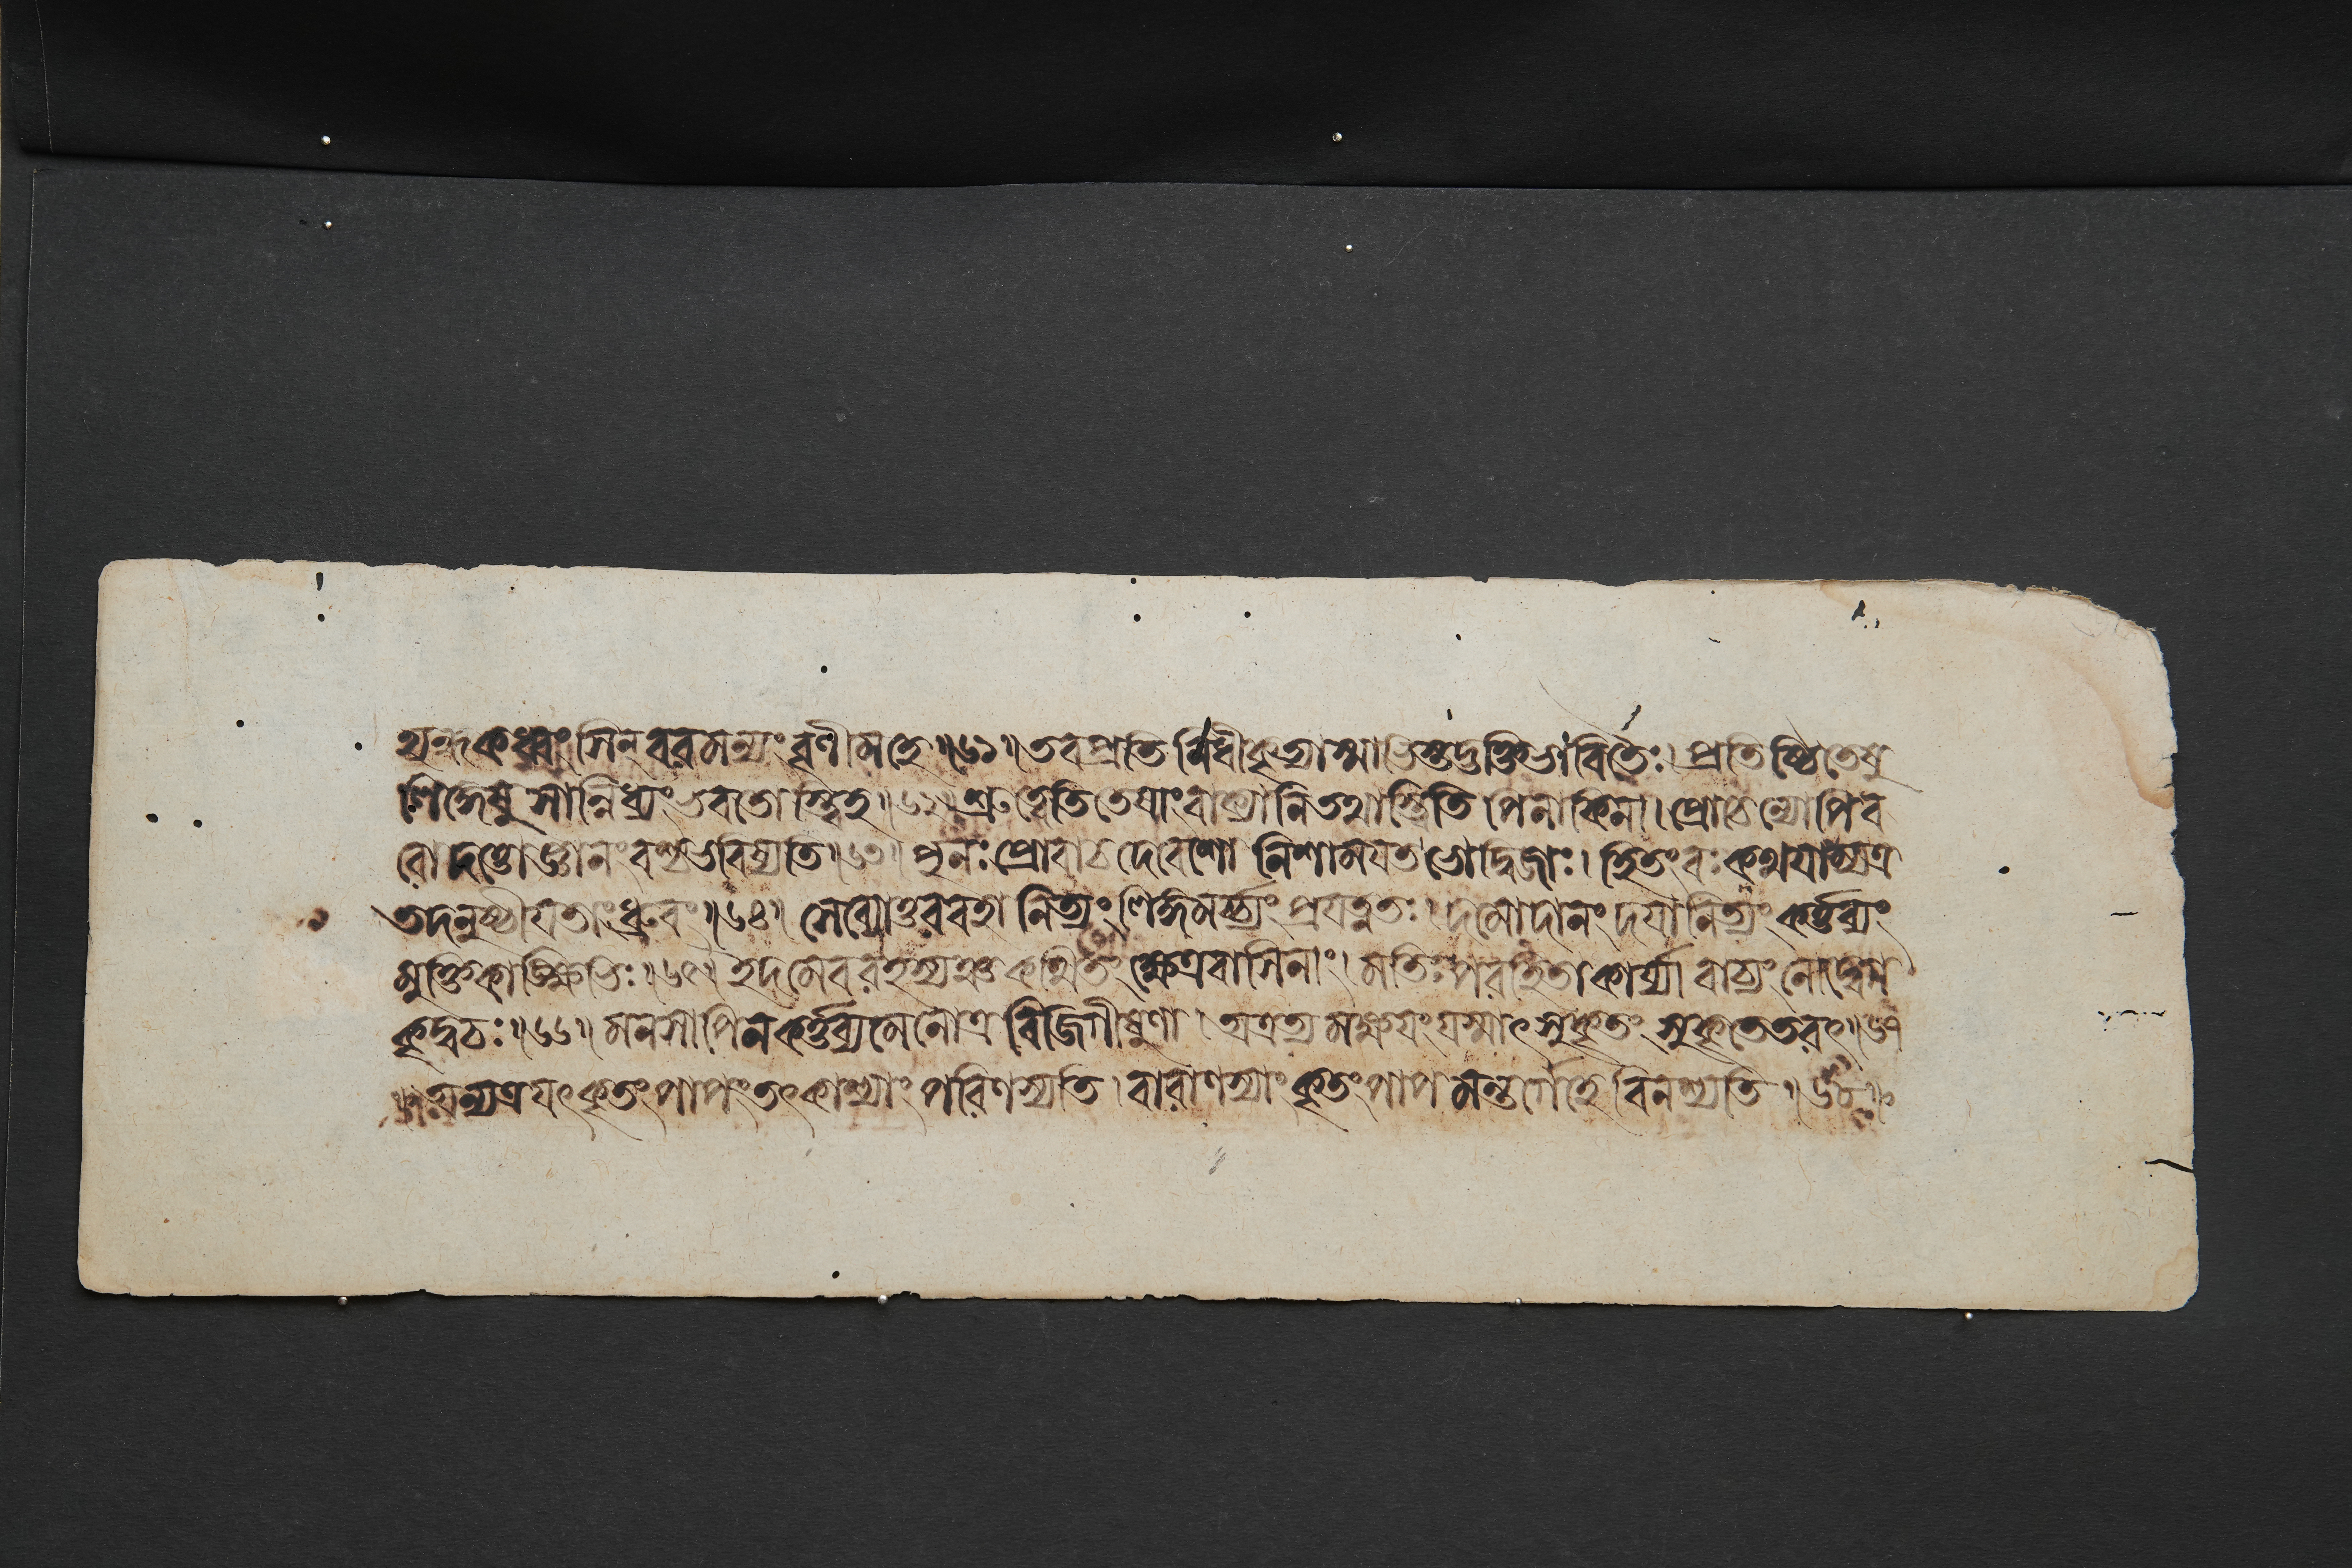 অন্ধকধ্বংসিন্ বরমন্যং বৃণীমহে ॥৬১॥ তব প্রতিনিধীকৃত্যাস্মাভিস্ত্বদ্ভক্তিভাবিতৈঃ। প্রতিষ্ঠিতেষু
লিঙ্গেষু সান্নিধ্যং ভবতোস্ত্বিহ॥৬২॥ শ্রুত্বেতি তেষাং বাক্যানি তথাস্ত্বিতি পিনাকিনা। প্রোচেন্যোপি ব
রো দত্তো জ্ঞানং বশ্চ ভবিষ্যতি॥৬৩॥ পুনঃ প্রোবাচ দেবেশো নিশাময়ত ভো দ্বিজাঃ। হিতং বঃ কথয়াম্যত্র
তদনুষ্ঠীয়তাং ধ্রুবং॥৬৪॥ সেব্যোত্তরবহা নিত্যং লিঙ্গমর্চ্যং প্রযত্নতঃ। দমো দানং দয়া নিত্যং কর্ত্তব্যং
মুক্তিকাঙ্ক্ষিভিঃ॥৬৫॥ ইদমেব রহস্যঞ্চ কথিতং ক্ষেত্রবাসিনাং। মতিঃ পরহিতা কার্য্যা বাচ্যং নোদ্বেগ
কৃদ্বচঃ॥৬৬॥ মনসাপি ন কর্ত্তব্যমেনোত্র বিজিগীষুণা। অত্রত্যমক্ষয়ং যস্মাৎ সুকৃতং সুকৃতেতরৎ॥৬৭
॥ অন্যত্র যৎ কৃতং পাপং তৎ কাশ্যাং পরিণশ্যতি। বারাণস্যাং কৃতং পাপমন্তর্গেহে বিনশ্যতি॥৬৮॥